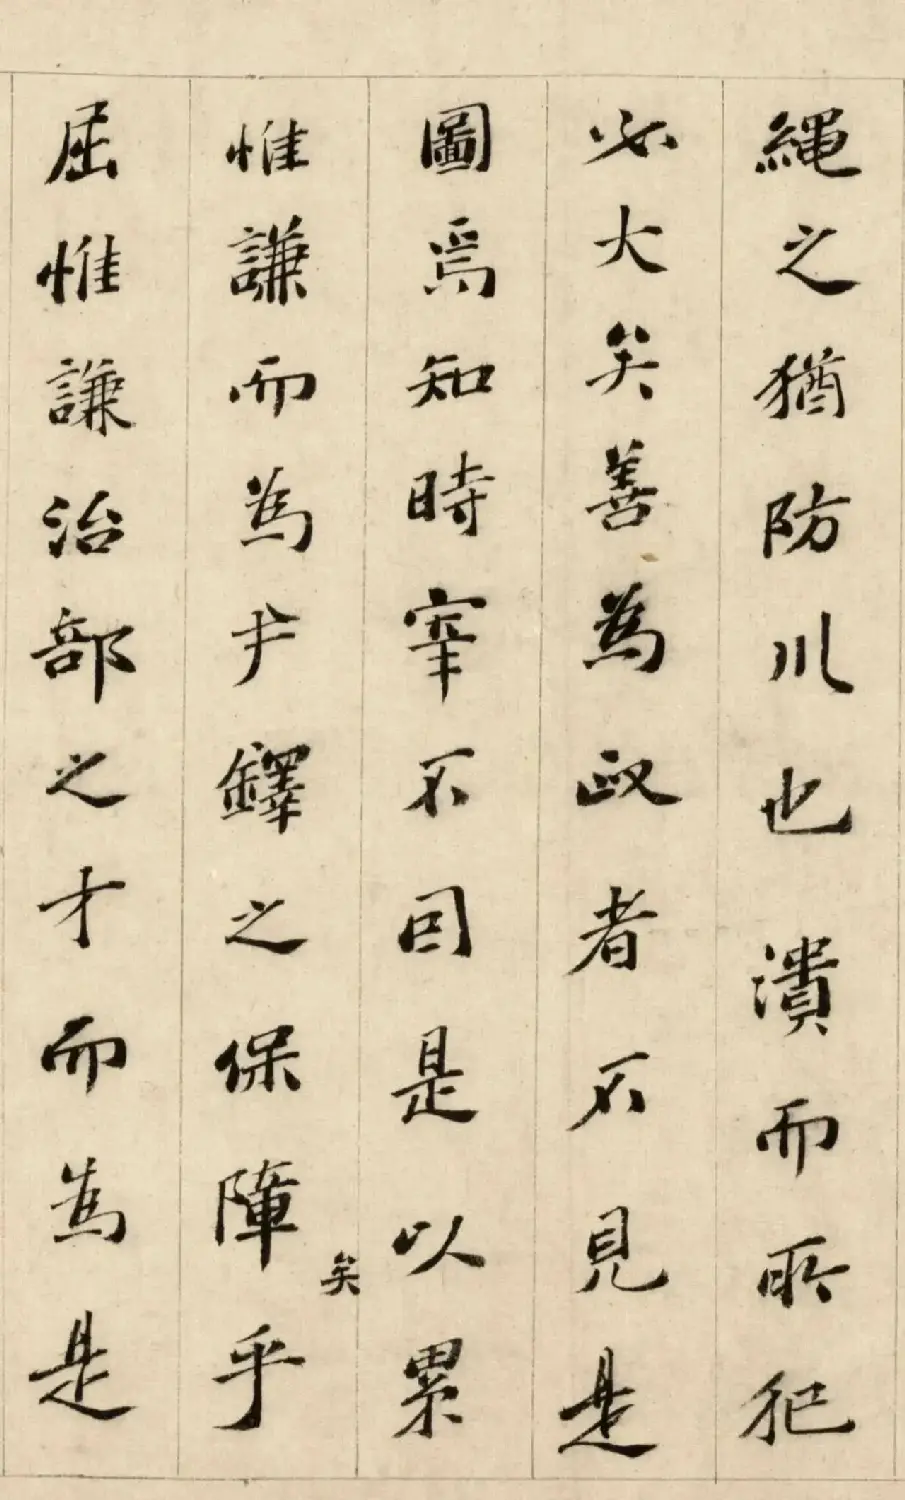 繩之猶防川也潰而所犯
必大矣善為政者不見是
圖焉知時宰不因是以累
惟謙而為尹鐸之保障矣乎
屈惟謙治部之才而為是